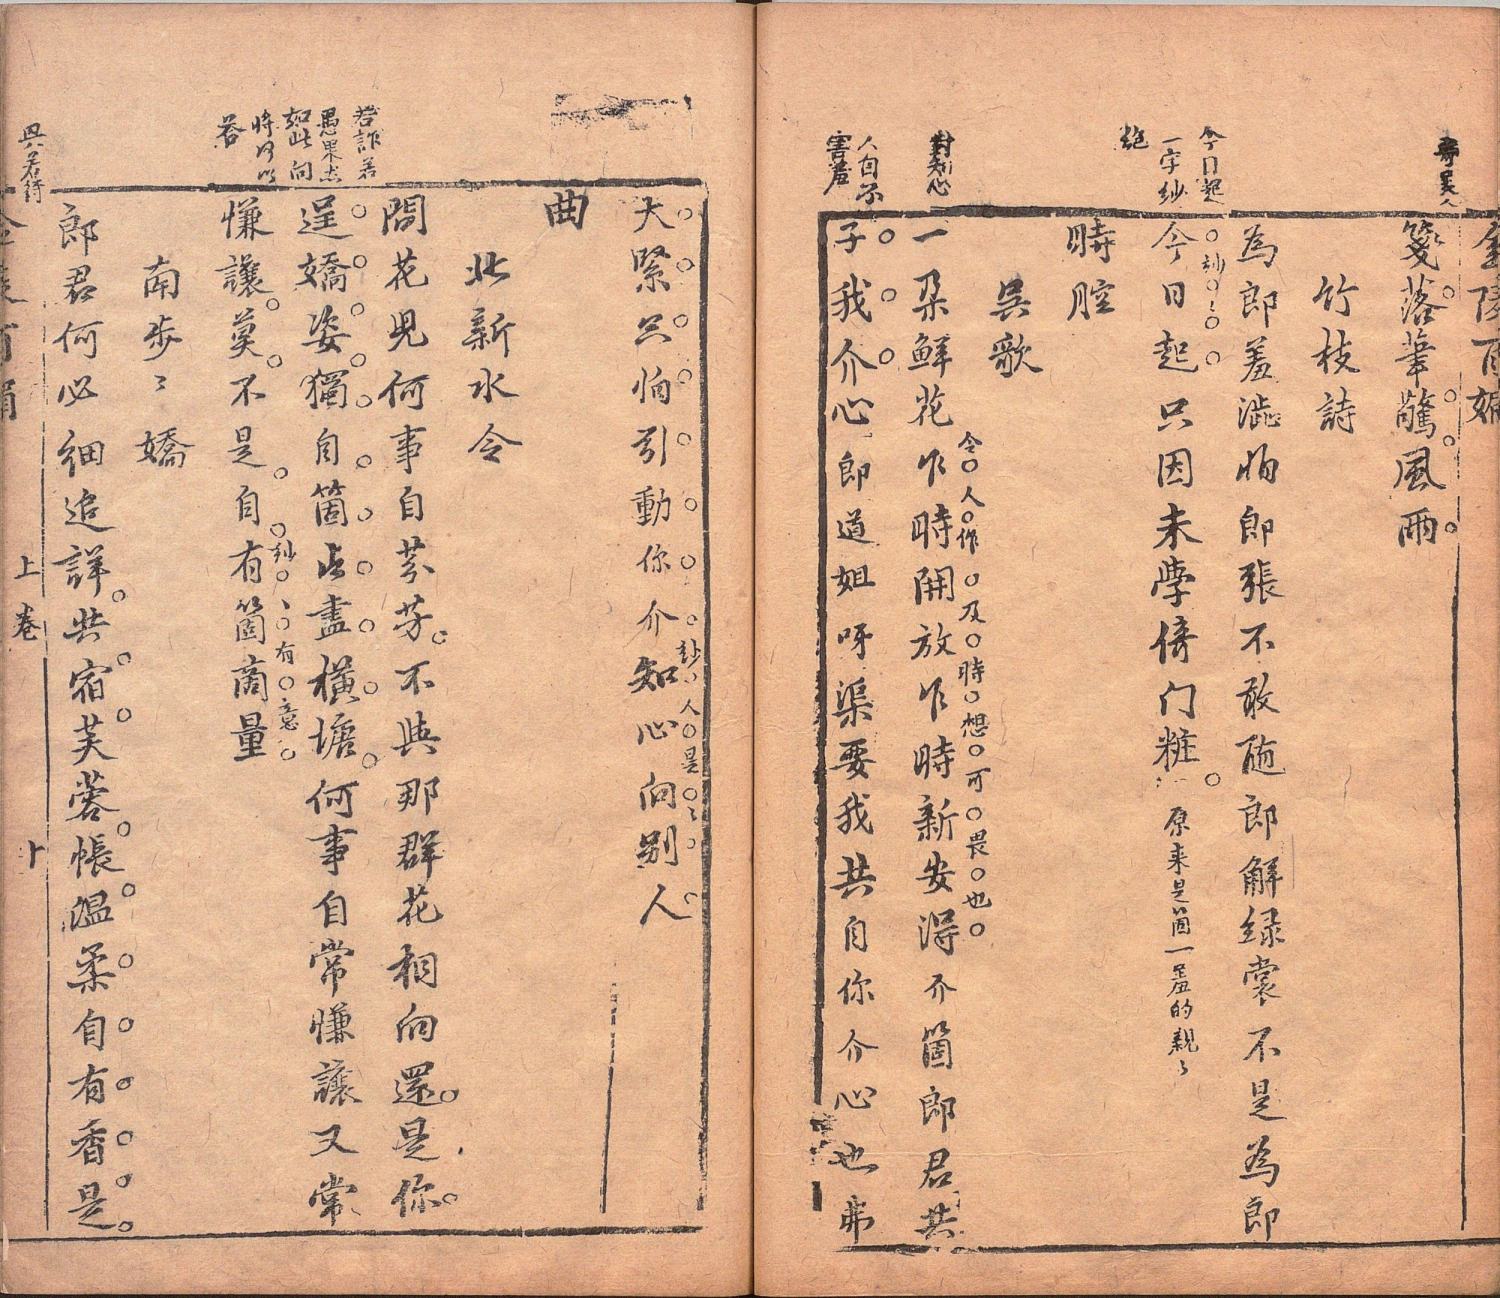 金陵百媚
箋落筆驚風雨
竹枝詩
為郎羞澁怕郎張不敢随郎解緑裳不是為郎
今日起只因未學倚门粧
原来是箇一羞的親〻
時腔
吳歌
一朶鮮花乍時開放乍時新安得介箇郎君共
令人作及時想可畏也
子我介心郎道姐呀渠要我共自你介心也弗
今日起
一字紗
絶
對知心
人自不
害羞
大緊只怕引動你介知心向别人
曲
北新水令
問花見何事自芬芳不與那群花相向還是你
逞嬌姿獨自箇占盡橫塘何事自常慊讓又常
慊讓莫不是自有箇商量
南步〻嬌
郎君何必細追詳共宿芙蓉帳温柔自有香是
若詐若
愚果态
如此向
時何以
答
上卷
十